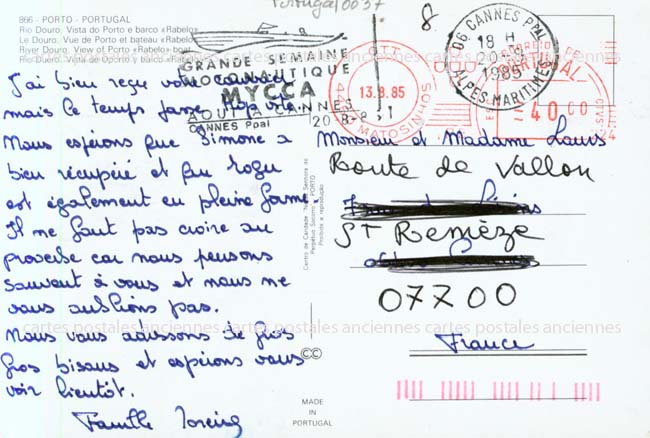 Portugal/0037
866 - PORTO - PORTUGAL
Rio Douro. Vista do Porto e barco «Rabelo»
Le Douro. Vue de Porto et bateau «Rabelo»
River Douro. View of Porto «Rabelo» boat
Rio Douro. Vista de Oporto y barco «Rabelo»
J'ai bien reçu votre courrier
mais le temps passe trop vite.
Nous espérons que Simone a
bien récupéré et que Roger
est également en pleine forme.
Il ne faut pas croire au
proverbe car nous pensons
souvent à vous et nous ne
vous oublions pas.
Nous vous adressons de gros
gros bisous et espérons vous
voir bientôt.
Famille
GRANDE SEMAINE
MOTONAUTIQUE
MYCCA
AOUT A CANNES
CANNES Ppal
8
06 CANNES Ppal
18 H
1985
ALPES-MARITIMES
C.T.T.
13.8.85
MATOSINHOS
CORREIO DE
PORTUGAL
40.00
CTVS
24
Monsieur et Madame
Route de Vallon
ST Remèze
07700
France
Centro de Caridade "Nossa Senhora do
Perpétuo Socorro" - PORTO
Proibida a reprodução
CC
MADE
IN
PORTUGAL
cartes postales anciennes cartes postales anciennes cartes postales anciennes